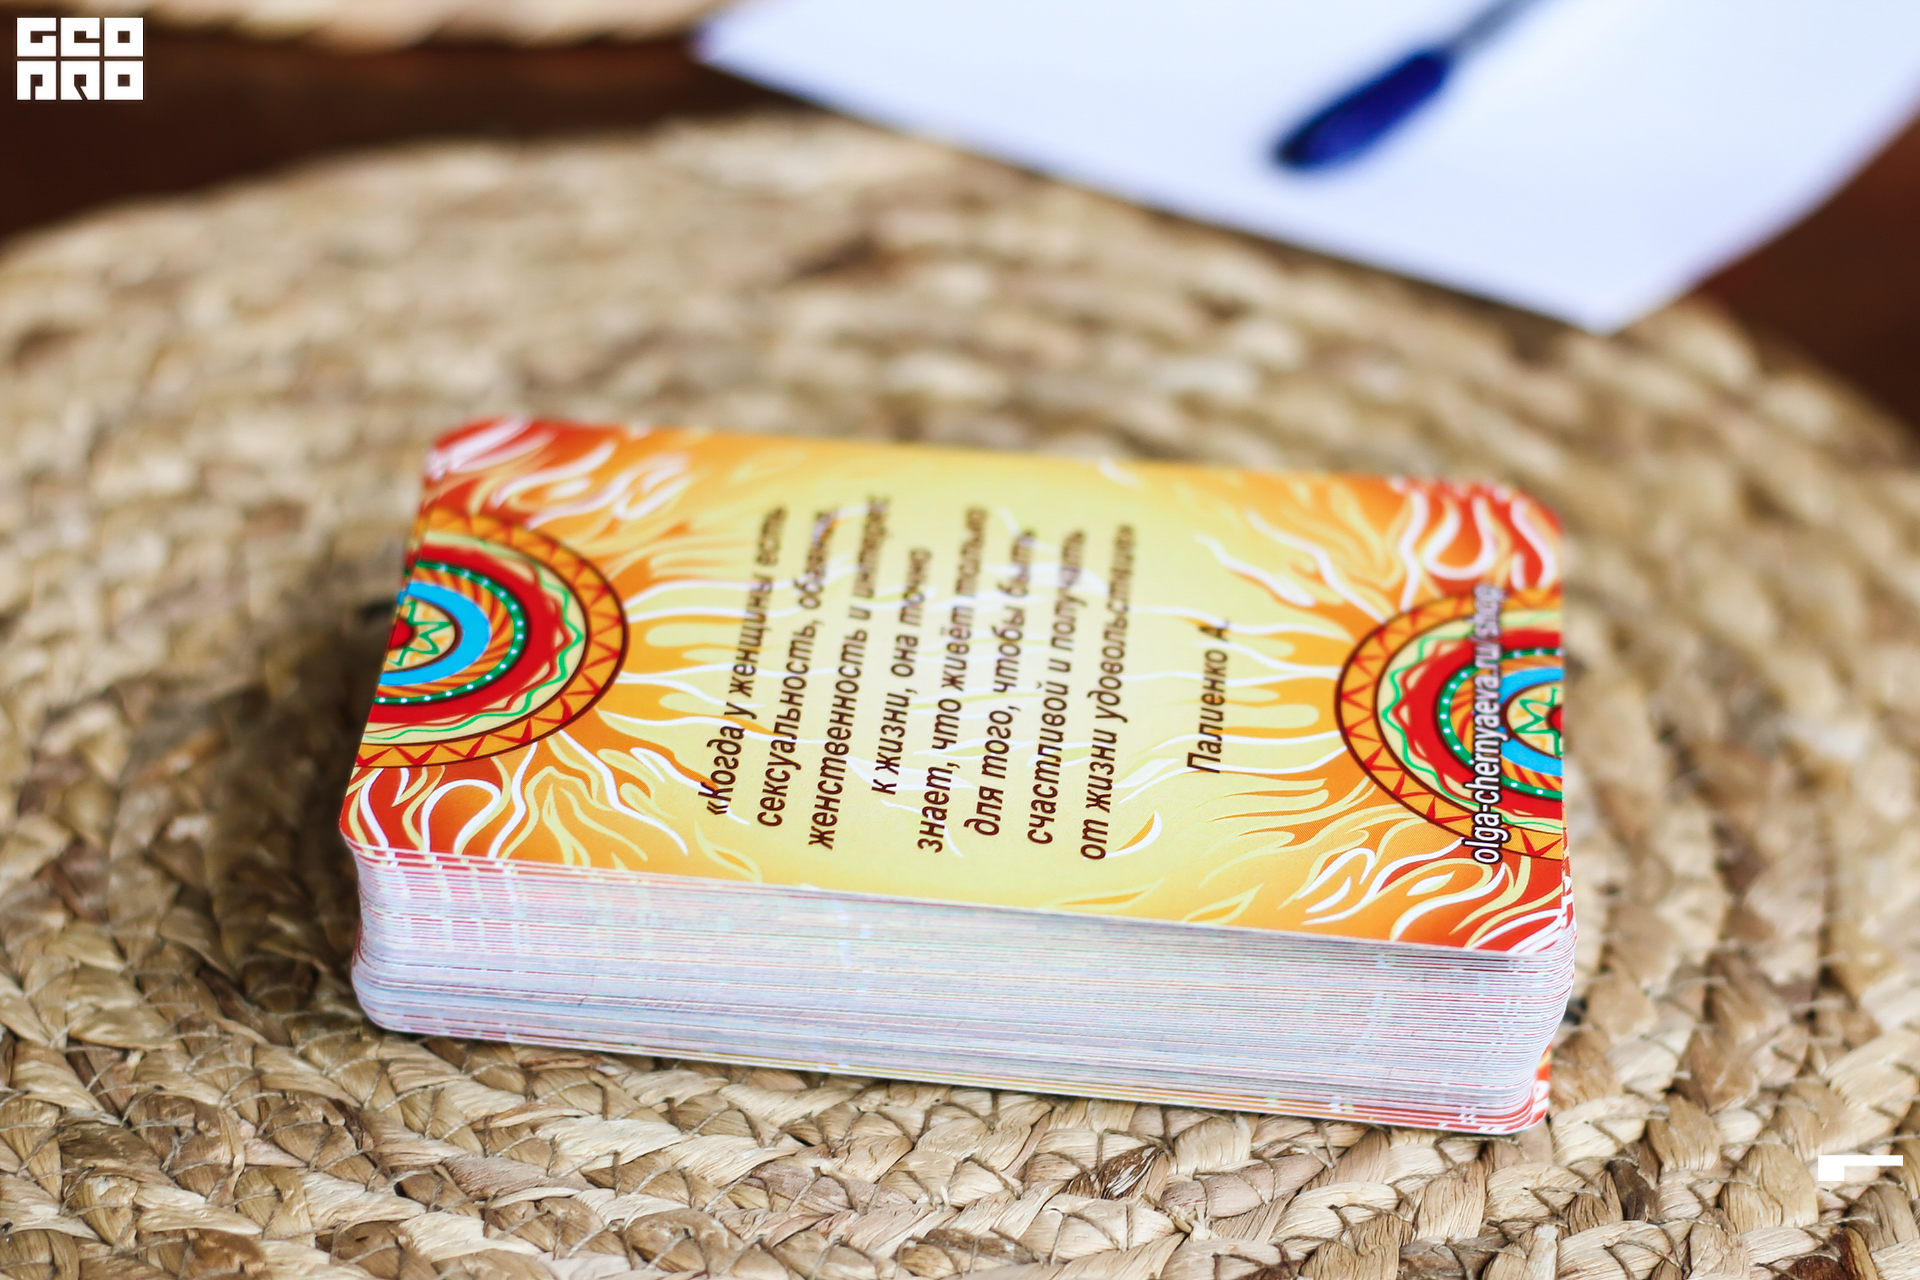 GEO
PRO
«Когда у женщины есть
сексуальность, обаяние,
женственность и интерес
к жизни, она точно
знает, что живёт только
для того, чтобы быть
счастливой и получать
от жизни удовольствие»
Палиенко А.
olga-chernyaeva.ru/shop